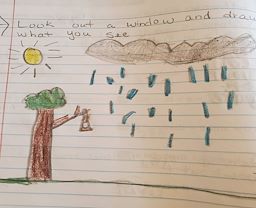 Look out a window and draw
what you see